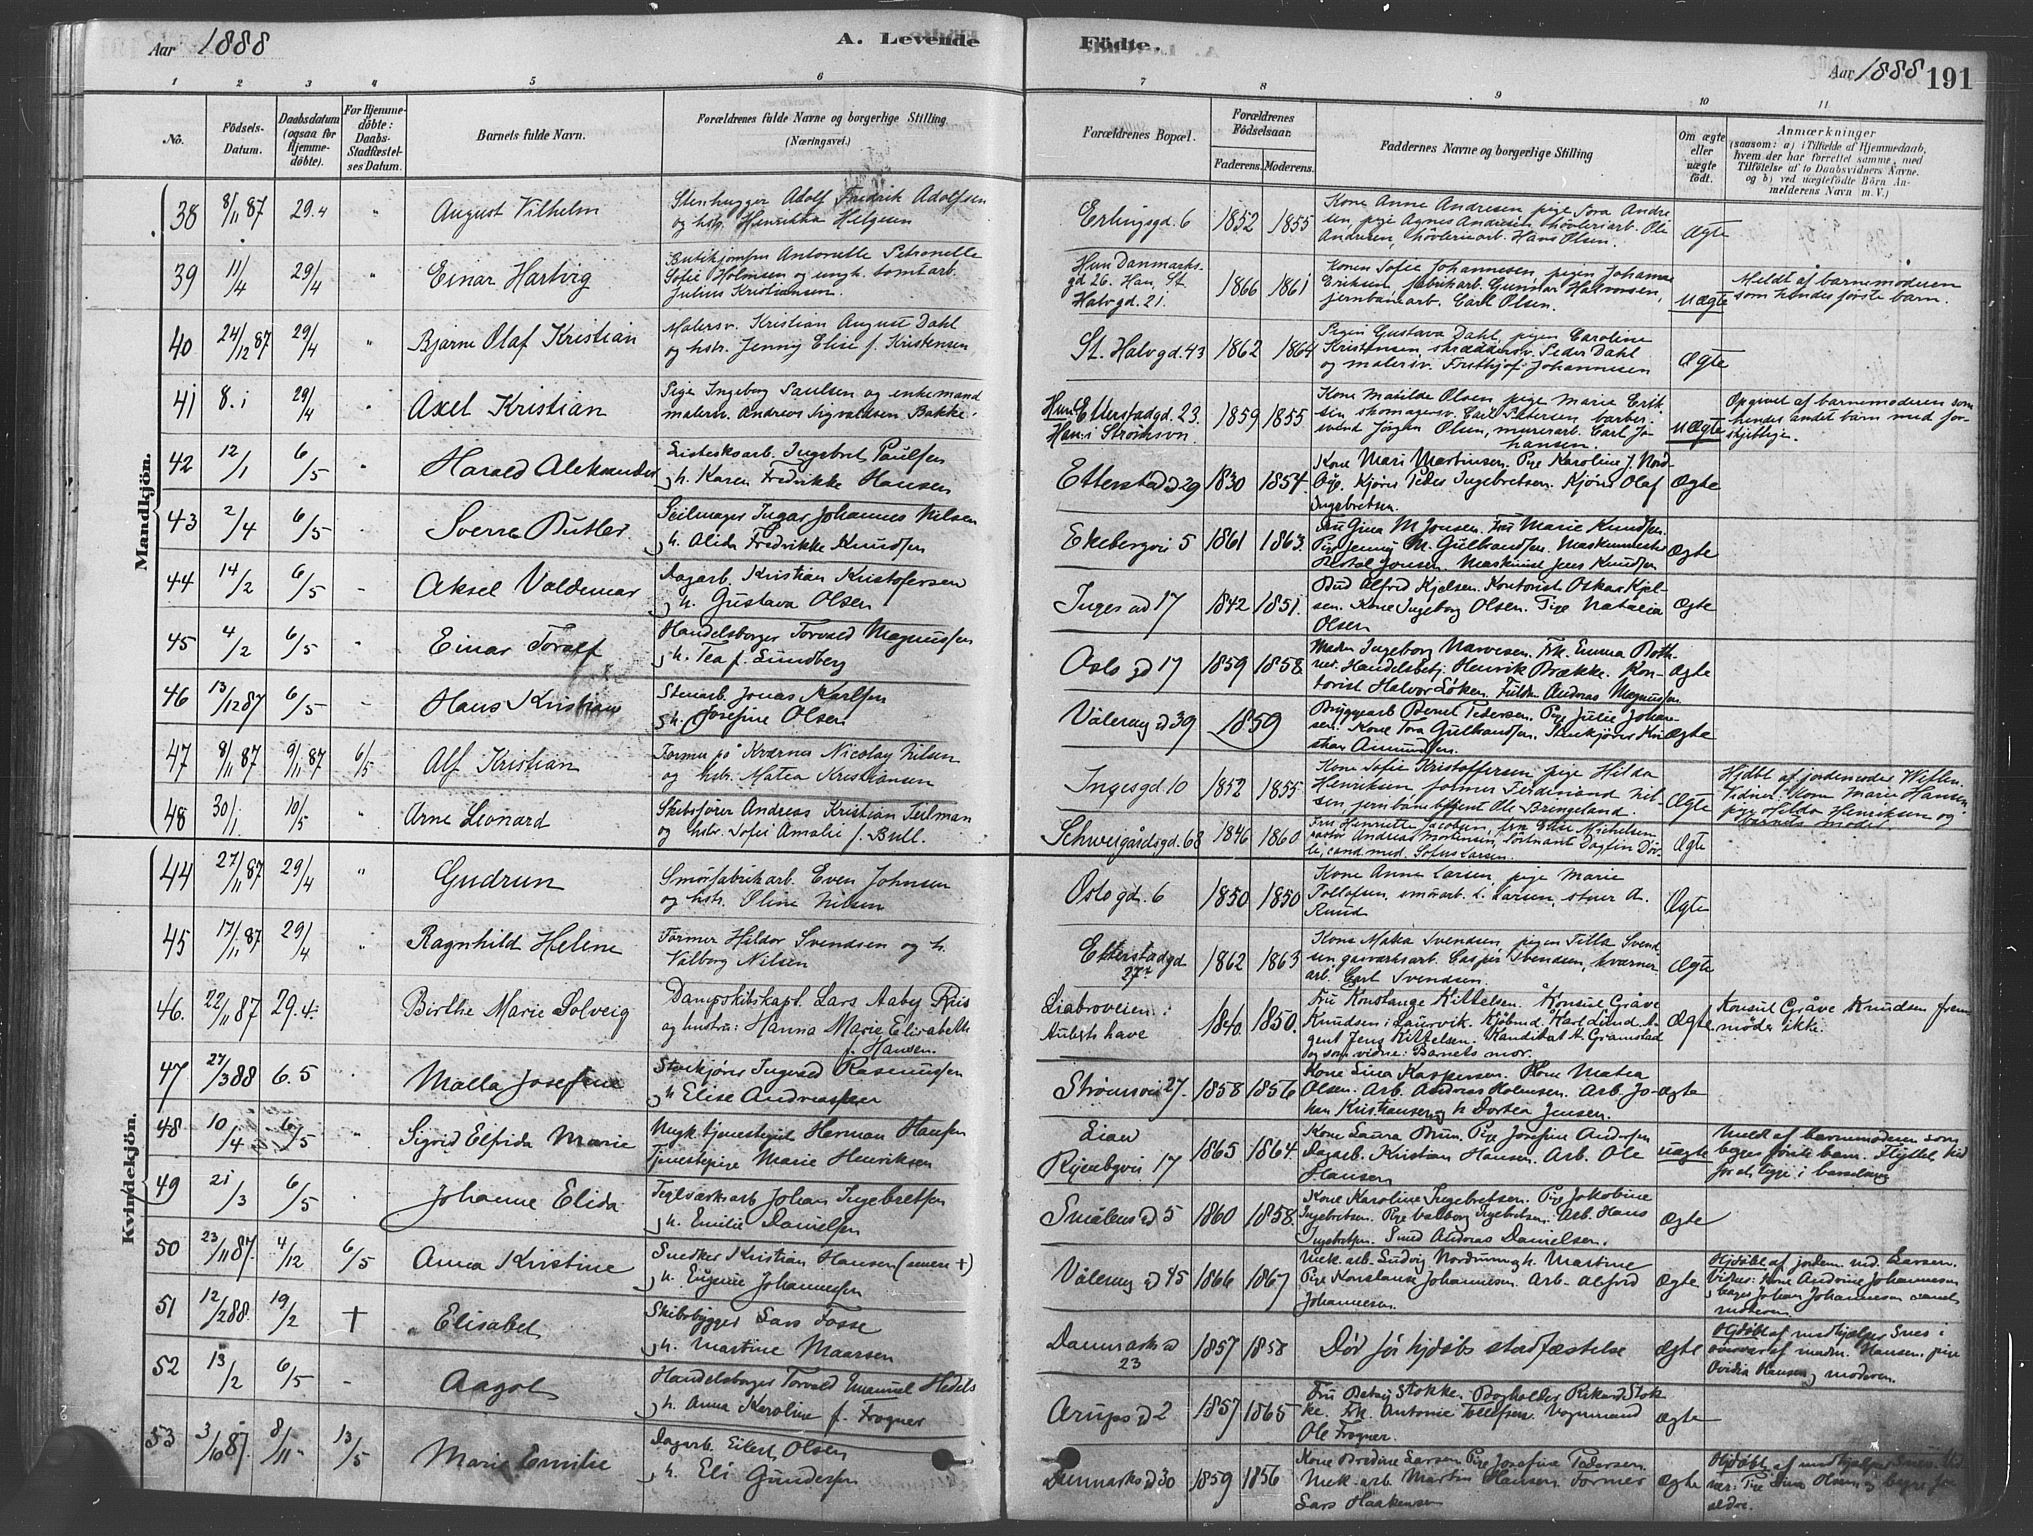 Aar 1888
A. Levende
Födte.
Aar 1888
191
1 2 3 4 5 6
7 8 9 10 11
No.
Födsels-
Datum.
Daabsdatum
(ogsaa for
Hjemme-
döbte).
For Hjemme-
döbte:
Daabs-
Stadfæstel-
ses Datum.
Barnets fulde Navn.
Forældrenes fulde Navne og borgerlige Stilling
(Næringsvei.)
Forældrenes Bopæl.
Forældrenes
Födselsaar.
Faderens.
Moderens.
Faddernes Navne og borgerlige Stilling
Om ægte
eller
uægte
födt.
Anmærkninger
(saasom: a) i Tilfælde af Hjemmedaab,
hvem der har forrettet samme, med
Tilföielse af to Daabsvidners Navne.
og b) ved uægtefödte Börn An-
melderens Navn m. V.)
Mandkjön.
38 8/11 87 29.4 " August Vilhelm
Stenhugger Adolf Fredrik Adolfsen
og hstr. Henrikka Helgesen
Erlingsgd. 6 1852 1855
Kone Anne Andresen pige Tora Andre
sen pige Agnes Andresen, høvleriarb. Ole
Andresen, høvleriarb. Hans Olsen.
Ægte
39 11/4 29/4 " Einar Hartvig
Butikjomfru Antonette Petronelle
Sofie Holmsen og ungk. tomtarb.
Julius Kristiansen.
Hun Danmarks-
gd 26. Han, St.
Halvgd. 21.
1866 1861
Konen Sofie Johannesen, pigen Johanne
Eriksen, fabrikarb. Gunnar Halvorsen,
jernbanearb. Carl Olsen.
uægte
Meldt af barnemoderen
som hendes første barn.
40 24/12 87 29/4 " Bjarne Olaf Kristian
Malersv. Kristian August Dahl
og hstr. Jenny Elise f. Kristensen
St. Halvgd. 43 1862 1864
Pigen Gustava Dahl, pigen Caroline
Kristensen, skræddersv. Peder Dahl
og malersv. Frithjof Johannesen
Ægte
41 8.1 29/4 " Axel Kristian
Pige Ingeborg Paulsen og enkemand
malersv. Andreas Sigvaldsen Bakke.
Hun: Etterstadgd. 23.
Han: i Strømsvn.
1859 1855
Kone Matilde Olsen, pige Marie Erik-
sen skomagersv. Carl Petersen, barber-
svend Jørgen Olsen, murerarb. Carl Jo
hansen.
uægte
Opgivet af barnemoderen som
hendes andet barn med for-
skjellige.
42 12/1 6/5 " Harald Aleksander
Listefabrikarb. Ingebret Paulsen
h. Karen Fredrikke Hansen
Etterstad gd 29 1830 1854.
Kone Mari Martinsen. Pige Karoline J. Nord-
Kjører Peder Ingebretsen. Kjører Olaf
Ingebretsen.
Ægte
43 2/4 6/5 Sverre Butler
Seilmager Ingar Johannes Nilsen
h. Alida Fredrikke Knudsen
Ekebergvei 5 1861 1863.
Fru Gina M. Jonsen. Fru Marie Knudsen.
Pige Jenny M. Gulbrandsen. Maskinmester
Jonsen. Maskinist Jens Knudsen
Ægte
44 14/2 6/5 - Aksel Valdemar
Dagarb. Kristian Kristofersen
h. Gustava Olsen
Inges gd 17 1842 1851.
Bud Alfred Kjelsen. Kontorist Oskar Kjel-
sen. Kone Ingeborg Olsen. Pige Natalia
Olsen
Ægte
45 4/2 6/5 Einar Toralf
Handelsborger Torvald Magnussen
h. Tea f. Lundberg
Oslo gd 17 1859 1858.
Madm Ingeborg Narvesen. Frk. Emma Both-
ner. Handelsbetj. Henrik Brække. Kon-
torist Halvor Løken. Andreas Magnussen
Ægte
46 13/12 87 6/5 - Hans Kristian
Stenarb. Jonas Karlsen
h. Josefine Olsen
Vålereng gd 39 1859
Bryggearb Bernt Pedersen. Pige Julie Johan-
sen. Kone Tora Gulbrandsen.
Amundsen.
Ægte
47 8/11 87 9/11 87 6/5 Alf Kristian
Former på Kværner Nicolay Nilsen
og hstr. Matea Kristiansen
Ingesgd. 10 1852 1855
Kone Sofie Kristoffersen, pige Hilda
Henriksen, former Ferdinand Nil-
sen, jernbanebetjent Ole Bringeland.
Ægte
Hjdbt af jordemoder Weflen.
Vidner: Kone Marie Hansen
pige Hilda Henriksen og
barnets moder.
48 30/1 10/5 " Arne Leonard
Skibsfører Andreas Kristian Teilman
og hstr. Sofie Amalie f. Bull.
Schweigårdsgd. 68 1846 1860
Fru Henriette Jacobsen, fru Elise Michelsen
Andreas Mortensen, løitnant Dagfin
cand. med. Sofus Larsen.
Ægte
Kvindekjön.
44 27/11 87 29/4 " Gudrun
Smørfabrikarb. Even Johnsen
og hstr. Oline Nilsen
Oslogd. 6 1850 1850
Kone Anne Larsen, pige Marie
Tollofsen, smørarb. L. Larsen, stuer A.
Ruud
Ægte
45 17/11 87 29/4 " Ragnhild Helene
Former Hildor Svendsen og h.
Valborg Nilsen
Etterstadgd
27 1862 1863
Kone Matea Svendsen, pigen Tilla Svend
sen gasværksarb. Casper Svendsen, kværner-
arb. Carl Svendsen.
Ægte
46. 22/11 87 29.4. Birthe Marie Solveig
Dampskibskapt. Lars Aaby Riis
og hustru: Hanna Marie Elisabeth
f. Hansen.
Liabroveien:
Auberts have
1840 1850.
Fru Konstanse Kittelsen. Konsul Gråve
Knudsen i Laurvik. Kjøbmd. Karl Lund. A-
gent Jens Kittelsen. Kandidat A. Gramstad
og som vidne: Barnets mor.
Ægte
Konsul Gråve Knudsen frem
møder ikke.
47 27/3 88 6.5 Malla Josefine
Stenkjører Ingvald Rasmussen
h Elise Andreassen
Strømsvei 27. 1858 1856
Kone Lina Kaspersen. Kone Matea
Olsen. Arb. Andreas Holmsen. Arb. Jo-
han Kristiansen og h Dortea Jensen.
Ægte
48 10/4 6/5 " Sigrid Elfida Marie
Ungk. tjenestegut Herman Hansen
Tjenestepige Marie Henriksen
Lian
Ryenbgvei 17 1865 1864
Kone Laura Bruun. Pige Josefine Andersen
Dagarb. Kristian Hansen. Arb. Ole
Hansen
uægte
Meldt af barnemoderen som
begges første barn. Flyttet hid
for at ligge i barselseng
49 21/3 6/5 Johanne Elida
Teglværksarb Johan Ingebretsen
h. Emilie Danielsen
Smålens gd 5 1860 1858.
Kone Karoline Ingebretsen. Pige Jakobine
Ingebretsen. Pige Valborg Ingebretsen. Arb. Hans
Ingebretsen. Smed Andreas Danielsen.
Ægte
50 23/11 87. 4/12 6/5 Anna Kristine
Snedker Kristian Hansen (senere +)
h. Eugenie Johannesen
Vålereng gd 45 1866 1867
Mek. arb. Ludvig Nordrum og h. Martine
Pige Konstanse Johannesen. Arb. Alfred
Johannesen.
Ægte
Hjdøbt af jordem. md. Larsen.
Vidner: Kone Andrine Johannesen
bager Johan Johannesen samt
moderen.
51 12/2 88. 19/2 † Elisabet
Skibsbygger Lars Fosse
h. Martine Maarsen
Danmarks gd
23 1857 1858
Død før hjdøbs stadfæstelse
Ægte
Hjdøbt af medhjælper Snes i
overvær af madm. Hansen, pige
Ovidia Hansen og moderen.
52 13/2 6/5 - Aagot
Handelsborger Torvald Emanuel Hedels
h. Anna Karoline f. Frogner
Arups gd 2 1857 1865
Fru Betsy Stokke. Bogholder Rikard Stok-
ke. Frk. Antonie Tollefsen. Vognmand
Ole Frogner.
Ægte
53 3/10 87. 8/11 13/5 Marie Emilie
Dagarb. Eilert Olsen
h. Eli Gundersen
Danmarks gd 30 1859 1856
Kone Bredine Larsen Pige Josefine Pedersen
Mek. arb. Martin Hansen. Former
Lars Haakensen
Ægte
Hjdøbt af medhjælper Snes.
ner: Pige Olsen og begge for
ældre.